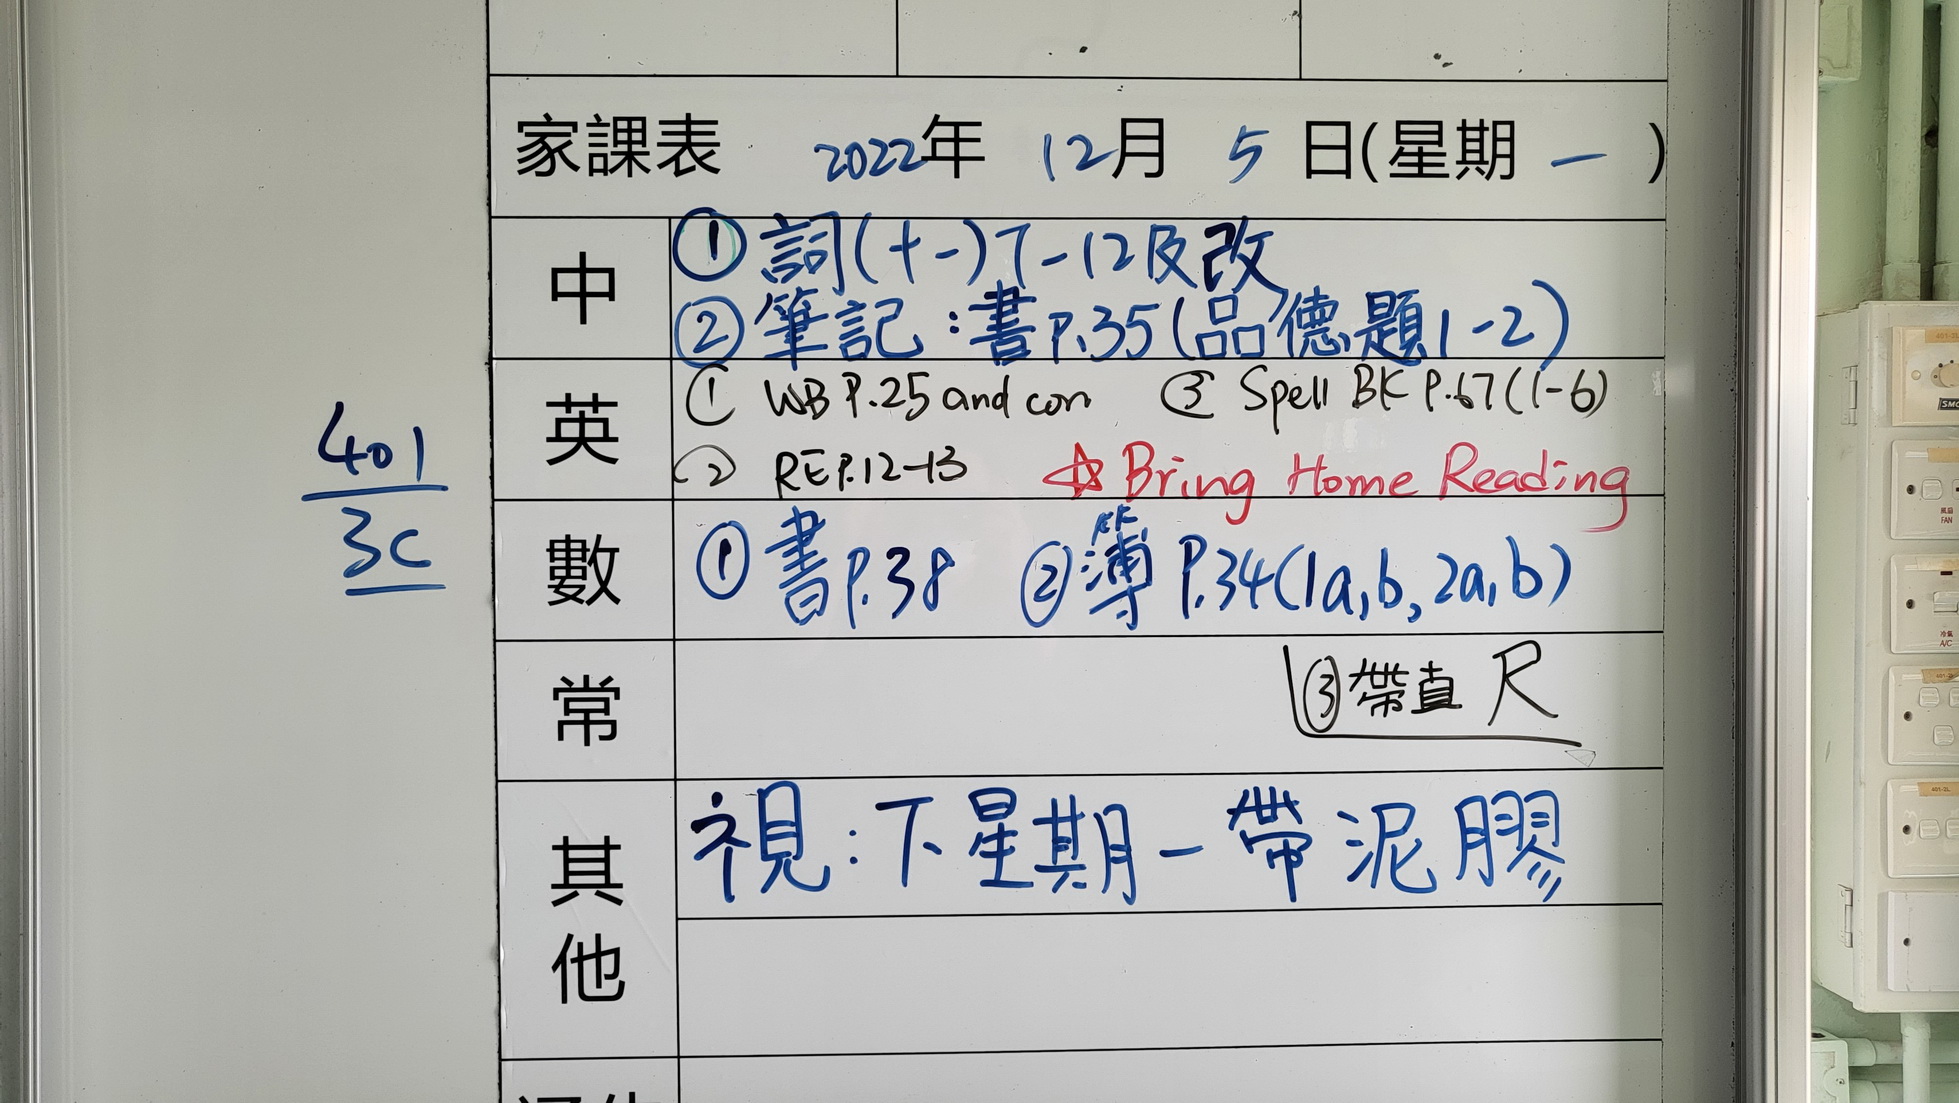 家課表 2022年 12月 5日(星期一)
中
① 詞(十一)7-12及改
② 筆記:書P.35(品德題1-2)
英
① WB P.25 and corr ③ Spell BK P.67(1-6)
② RE P.12-13 ☆ Bring Home Reading
401
3C
數
① 書P.38 ② 簿 P.34(1a,b,2a,b)
常
③ 帶直尺
其他
視:下星期一帶泥膠
風扇
FAN
冷氣
A/C